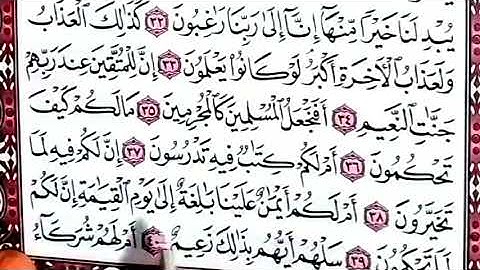 يُبْدِلَنَا خَيْرًا مِّنْهَآ إِنَّآ إِلَىٰ رَبِّنَا رَٰغِبُونَ ٣٢ كَذَٰلِكَ الْعَذَابُ
وَلَعَذَابُ الْآخِرَةِ أَكْبَرُ لَوْ كَانُوا۟ يَعْلَمُونَ ٣٣ إِنَّ لِلْمُتَّقِينَ عِندَ رَبِّهِمْ
جَنَّٰتِ النَّعِيمِ ٣٤ أَفَنَجْعَلُ الْمُسْلِمِينَ كَالْمُجْرِمِينَ ٣٥ مَا لَكُمْ كَيْفَ
تَحْكُمُونَ ٣٦ أَمْ لَكُمْ كِتَٰبٌ فِيهِ تَدْرُسُونَ ٣٧ إِنَّ لَكُمْ فِيهِ لَمَا
تَخَيَّرُونَ ٣٨ أَمْ لَكُمْ أَيْمَٰنٌ عَلَيْنَا بَٰلِغَةٌ إِلَىٰ يَوْمِ الْقِيَٰمَةِ إِنَّ لَكُمْ
لَمَا تَحْكُمُونَ ٣٩ سَلْهُمْ أَيُّهُم بِذَٰلِكَ زَعِيمٌ ٤٠ أَمْ لَهُمْ شُرَكَآءُ